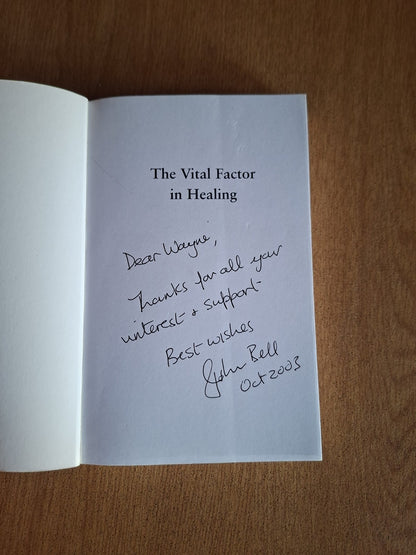 The Vital Factor
in Healing
Dear Wayne,
Thanks for all your
interest & support.
Best wishes
John Bell
Oct 2003